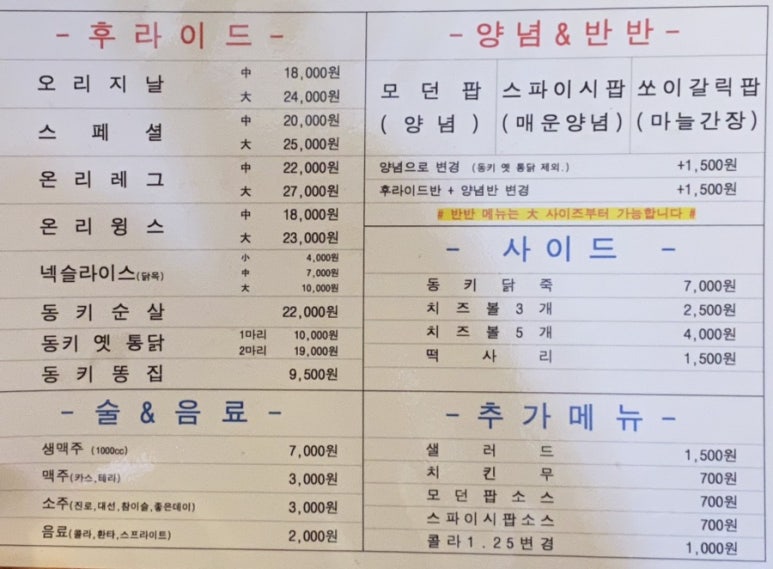 - 후라이드 -
오리지날 中 18,000원
大 24,000원
스페셜 中 20,000원
大 25,000원
온리레그 中 22,000원
大 27,000원
온리윙스 中 18,000원
大 23,000원
넥슬라이스(닭목) 小 4,000원
中 7,000원
大 10,000원
동키순살 22,000원
동키 옛 통닭 1마리 10,000원
2마리 19,000원
동키 똥집 9,500원
- 양념&반반 -
모던팝 스파이시팝 쏘이갈릭팝
(양념) (매운양념) (마늘간장)
양념으로 변경 (동키 옛 통닭 제외.) +1,500원
후라이드반 + 양념반 변경 +1,500원
# 반반 메뉴는 大 사이즈부터 가능합니다 #
- 사이드 -
동키닭죽 7,000원
치즈볼3개 2,500원
치즈볼5개 4,000원
떡사리 1,500원
- 술&음료 -
생맥주 (1000cc) 7,000원
맥주(카스,테라) 3,000원
소주(진로,대선,참이슬,좋은데이) 3,000원
음료(콜라,환타,스프라이트) 2,000원
- 추가메뉴 -
샐러드 1,500원
치킨무 700원
모던팝소스 700원
스파이시팝소스 700원
콜라1.25변경 1,000원